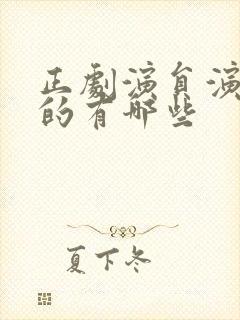 正劇演員演
的有哪些
夏下冬